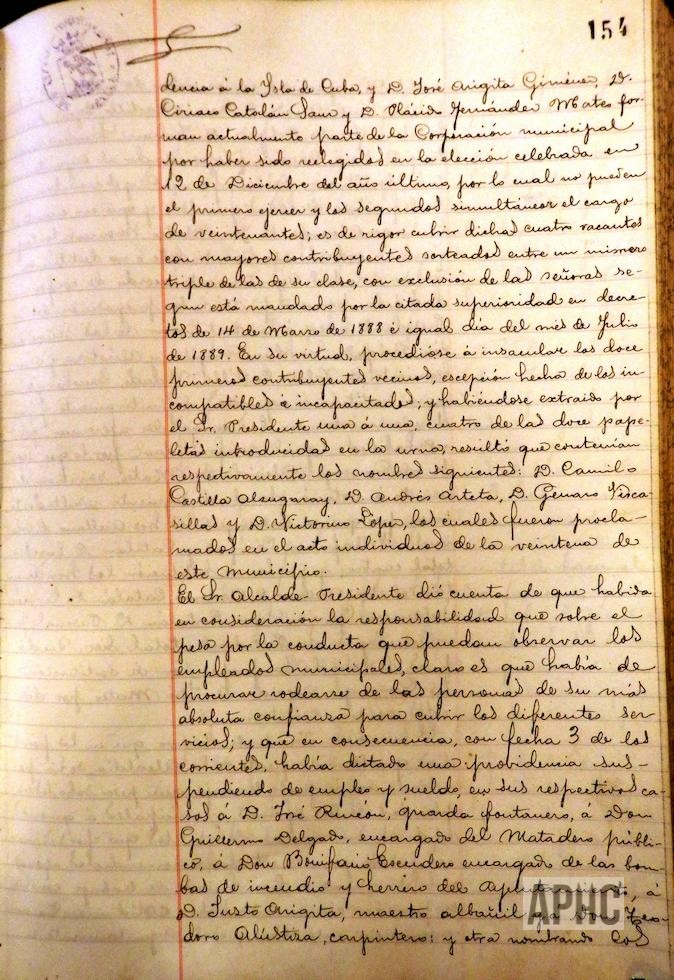 154
dencia á la Isla de Cuba, y D. José Angita Giménez, D.
Ciriaco Catalán Sanz y D. Plácido Fernández Mateo for-
man actualmente parte de la Corporación municipal
por haber sido reelegidos en la elección celebrada en
12 de Diciembre del año último, por lo cual no pueden
el primero ejercer y los segundos simultánear el cargo
de veintenantes; es de rigor cubrir dichas cuatro vacantes
con mayores contribuyentes sorteados entre un número
triple de los de su clase, con exclusión de las señoras se-
gun está mandado por la citada superioridad en decre-
tos de 14 de Marzo de 1888 é igual día del mes de Julio
de 1889. En su virtud, procedióse á insacular los doce
primeros contribuyentes vecinos, escepción hecha de los in-
compatibles é incapacitados, y habiéndose extraido por
el Sr. Presidente una á una, cuatro de las doce pape-
letas introducidas en la urna, resultó que contenían
respectivamente los nombres siguientes: D. Camilo
Castilla Alzugaray, D. Andrés Arteta, D. Genaro Visca-
sillas y D. Victorino López, los cuales fueron procla-
mados en el acto individuos de la veintena de
este municipio.
El Sr. Alcalde-Presidente dió cuenta de que habida
en consideración la responsabilidad que sobre el
pesa por la conducta que puedan observar los
empleados municipales, claro es que había de
procurar rodearse de las personas de su más
absoluta confianza para cubrir los diferentes ser-
vicios; y que en consecuencia, con fecha 3 de los
corrientes, había dictado una providencia sus-
pendiendo de empleo y sueldo, en sus respectivos ca-
sos á D. José Rincón, guarda fontanero, á Don
Guillermo Delgado, encargado del Matadero públi-
co, á Don Bonifacio Escudero encargado de las bom-
bas de incendio y herrero del Ayuntamiento, á
D. Justo Angita, maestro albañil y a Don Teo-
doro Alústiza, carpintero: y otra nombrando los
APHC